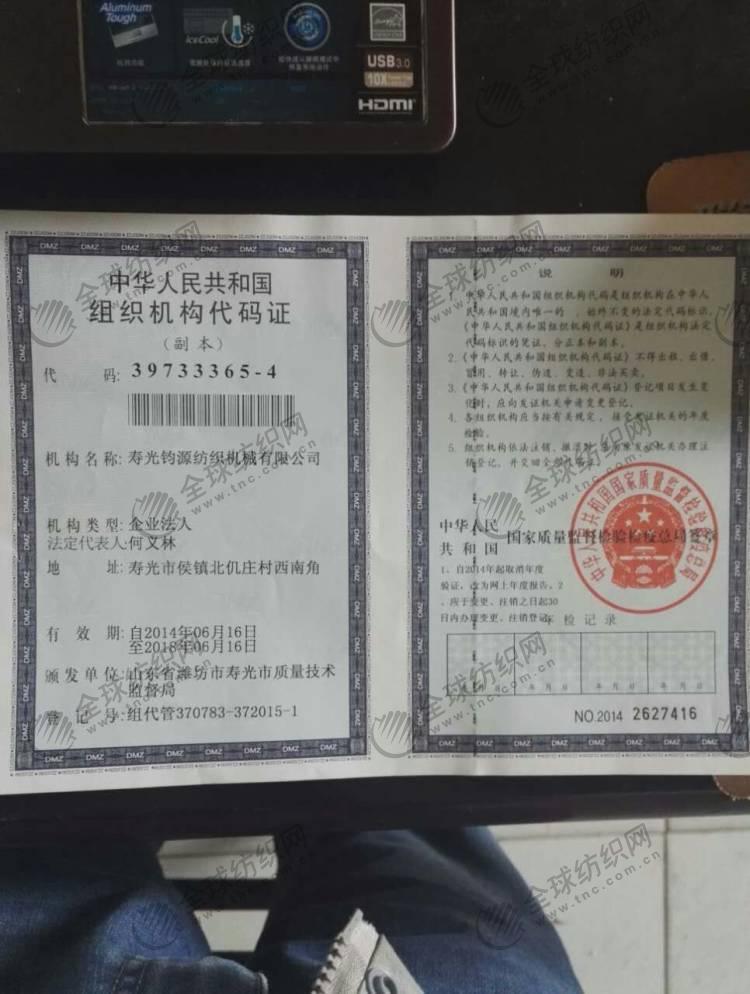 Aluminum
Tough
IceCool
USB 3.0
10X
HDMI
中华人民共和国
组织机构代码证
（副本）
代 码: 39733365-4
机构名称: 寿光钧源纺织机械有限公司
机构类型: 企业法人
法定代表人: 何义林
地 址: 寿光市侯镇北仉庄村西南角
有 效 期: 自2014年06月16日
至2018年06月16日
颁发单位: 山东省潍坊市寿光市质量技术
监督局
登 记 号: 组代管370783-372015-1
说 明
中华人民共和国组织机构代码是组织机构在中华人
民共和国境内唯一的、始终不变的法定代码标识，
《中华人民共和国组织机构代码证》是组织机构法定
代码标识的凭证，分正本和副本。
2. 《中华人民共和国组织机构代码证》不得出租、出借、
冒用、转让、伪造、变造、非法买卖。
3. 《中华人民共和国组织机构代码证》登记项目发生变
化时，应向发证机关申请变更登记。
4. 各组织机构应当按有关规定，接受发证机关的年度
检验。
5. 组织机构依法注销、撤消时，应向原发证机关办理注
销登记，并交回全部代码证。
中华人民
共和国
国家质量监督检验检疫总局签章
中华人民共和国国家质量监督检验检疫总局
1、自2014年起取消年度
验证，改为网上年度报告。2
、应于变更、注销之日起30
日内办理变更、注销登记。
年检记录
年 月 日 年 月 日 年 月 日 年 月 日
NO.2014 2627416
全球纺织网
www.tnc.com.cn